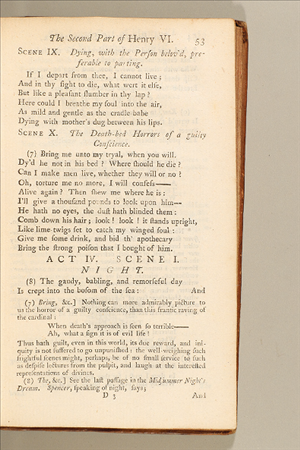 The Second Part of Henry VI. 53
SCENE IX. Dying, with the Perſon belov'd, pre-
ferable to parting.
If I depart from thee, I cannot live;
And in thy ſight to die, what were it elſe,
But like a pleaſant ſlumber in thy lap?
Here could I breathe my ſoul into the air,
As mild and gentle as the cradle-babe
Dying with mother's dug between his lips.
SCENE X. The Death-bed Horrors of a guilty
Conſcience.
(7) Bring me unto my tryal, when you will.
Dy'd he not in his bed? Where ſhould he die?
Can I make men live, whether they will or no?
Oh, torture me no more, I will confeſs——
Alive again? Then ſhew me where he is:
I'll give a thouſand pounds to look upon him—
He hath no eyes, the duſt hath blinded them:
Comb down his hair; look! look! it ſtands upright,
Like lime-twigs ſet to catch my winged ſoul:
Give me ſome drink, and bid th' apothecary
Bring the ſtrong poiſon that I bought of him.
ACT IV. SCENE I.
NIGHT.
(8) The gaudy, babling, and remorſeful day
Is crept into the boſom of the ſea: And
(7) Bring, &c.] Nothing can more admirably picture to
us the horror of a guilty conſcience, than this frantic raving of
the cardinal:
When death's approach is ſeen ſo terrible——
Ah, what a ſign it is of evil life!
Thus hath guilt, even in this world, its due reward, and ini-
quity is not ſuffered to go unpuniſhed: the well-weighing ſuch
frightful ſcenes might, perhaps, be of no ſmall ſervice to ſuch
as deſpiſe lectures from the pulpit, and laugh at the intereſted
repreſentations of divines.
(8) The, &c.] See the laſt paſſage in the Midſummer Night's
Dream. Spencer, ſpeaking of night, ſays;
D 3 And